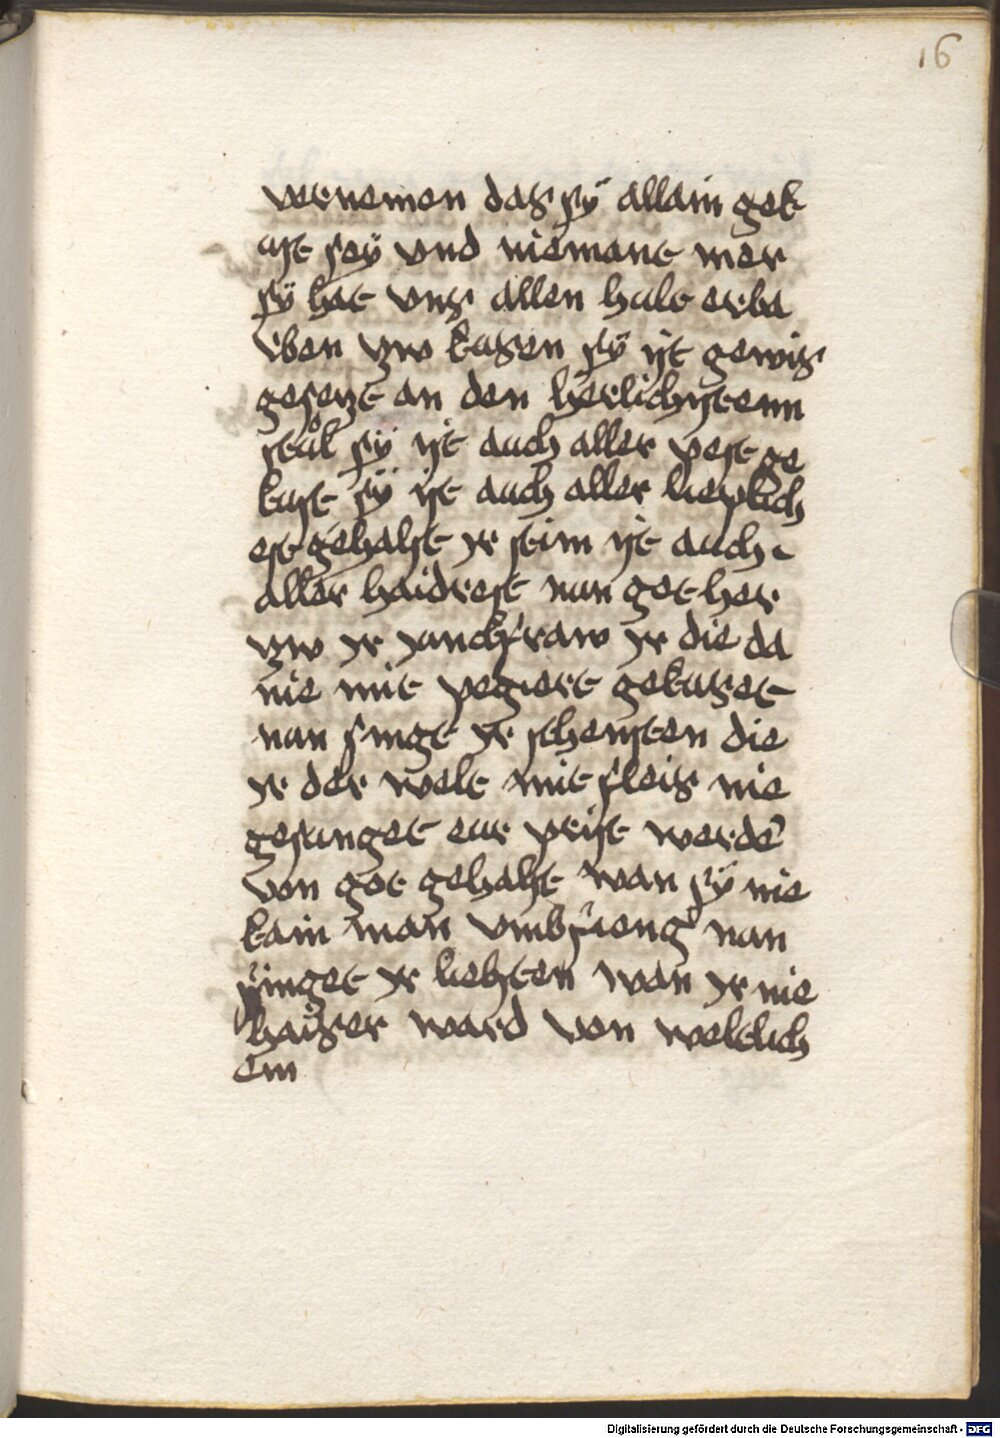 16
vernemen das sÿ allain gek
ust seÿ vnd niemant mer
sÿ hat vns allen hult erba
rben zw kusen sÿ ist gewis
gesetzt an den herlichstenn
stůl sÿ ist auch aller pest ge
kust sÿ ist auch aller lieplich
est gehalst yr stim ist auch
aller haidrest nun get her
zw yr junckfraw yr die da
nie mit pegiert gekuset
nun singt yr schensten die
yr der welt mit fleis nie
gesunget eur prist werden̄
von got gehalst wan sÿ nie
kain man vmbfieng nun
singet yr liebsten wan yr nie
haiser ward von weltlich
em
Digitalisierung gefördert durch die Deutsche Forschungsgemeinschaft - DFG